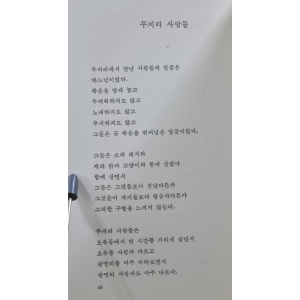 무지리 사람들
무지리에서 만난 사람들의 얼굴은
하느님이었다.
죽음을 앞에 놓고
두려워하지도 않고
노래하지도 않고
무서하지도 않고
그들은 곧 죽음을 뛰어넘은 얼굴이었다.
그들은 소와 돼지와
개와 닭과 고양이와 함께 살았다
함께 살면서
그들은 그것들보다 잘났다든가
그것들이 자기들보다 열등하다든가
그러한 구별을 느끼지 않는다.
무지리 사람들은
오류동에서 반 시간쯤 거리에 살면서
오류동 사람과 다르고
광명리를 아주 바라보면서
광명리 사람과도 아주 다르다.